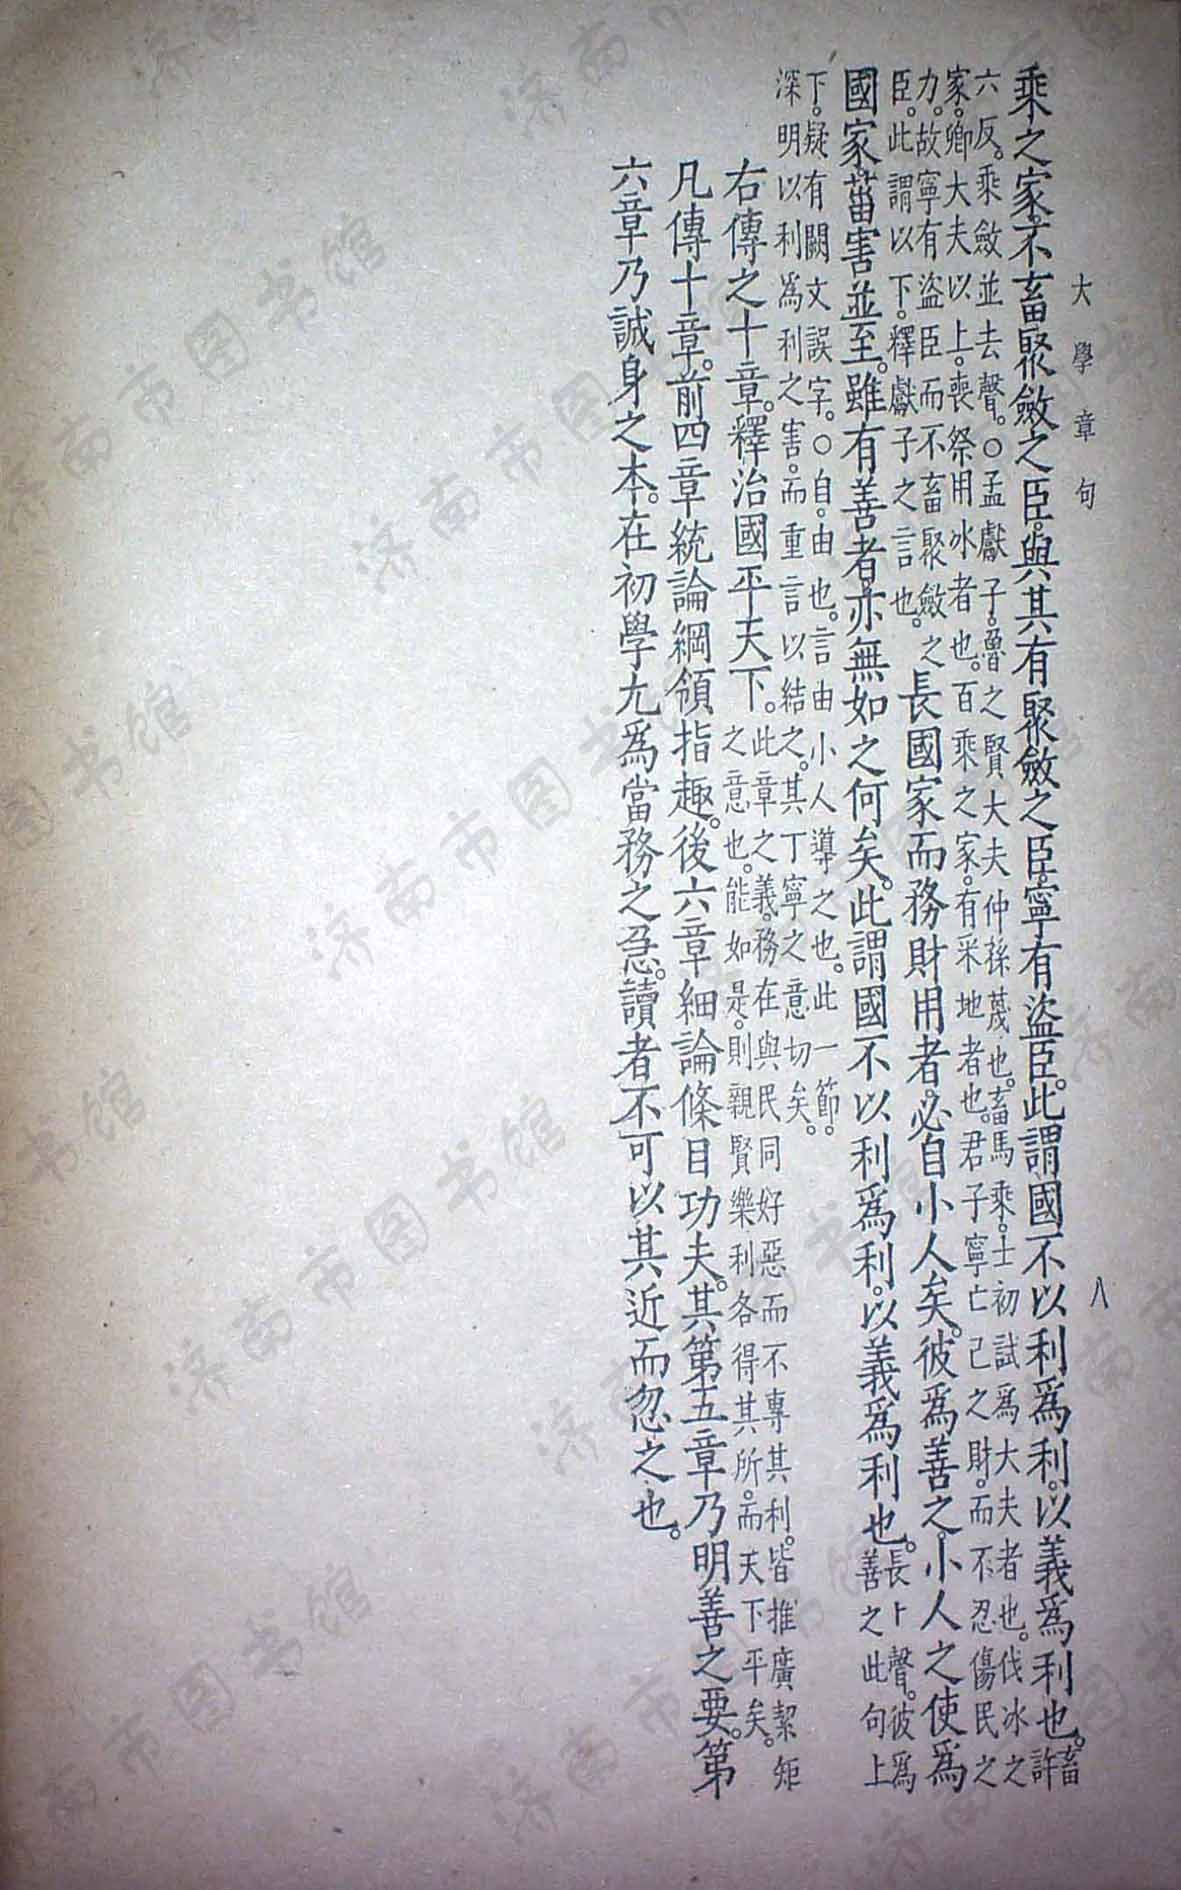 大學章句
八
乘之家。不畜聚斂之臣。與其有聚斂之臣。寧有盜臣。此謂國不以利爲利。以義爲利也。畜
許
六反。乘斂並去聲。○孟獻子。魯之賢大夫仲孫蔑也。畜馬乘。士初試爲大夫者也。伐冰之
家。卿大夫以上。喪祭用冰者也。百乘之家。有采地者也。君子寧亡己之財。而不忍傷民之
力。故寧有盜臣而不畜聚斂之
臣。此謂以下。釋獻子之言也。
長國家而務財用者。必自小人矣。彼爲善之。小人之使爲
國家。菑害並至。雖有善者。亦無如之何矣。此謂國不以利爲利。以義爲利也。
長上聲。彼爲
善之此句上
下。疑有闕文誤字。○自。由也。言由小人導之也。此一節。
深明以利爲利之害。而重言以結之。其丁寧之意切矣。
右傳之十章。釋治國平天下。
此章之義。務在與民同好惡而不專其利。皆推廣絜矩
之意也。能如是。則親賢樂利各得其所。而天下平矣。
凡傳十章。前四章統論綱領指趣。後六章細論條目功夫。其第五章乃明善之要。第
六章乃誠身之本。在初學尤爲當務之急。讀者不可以其近而忽之也。
济南市图书馆